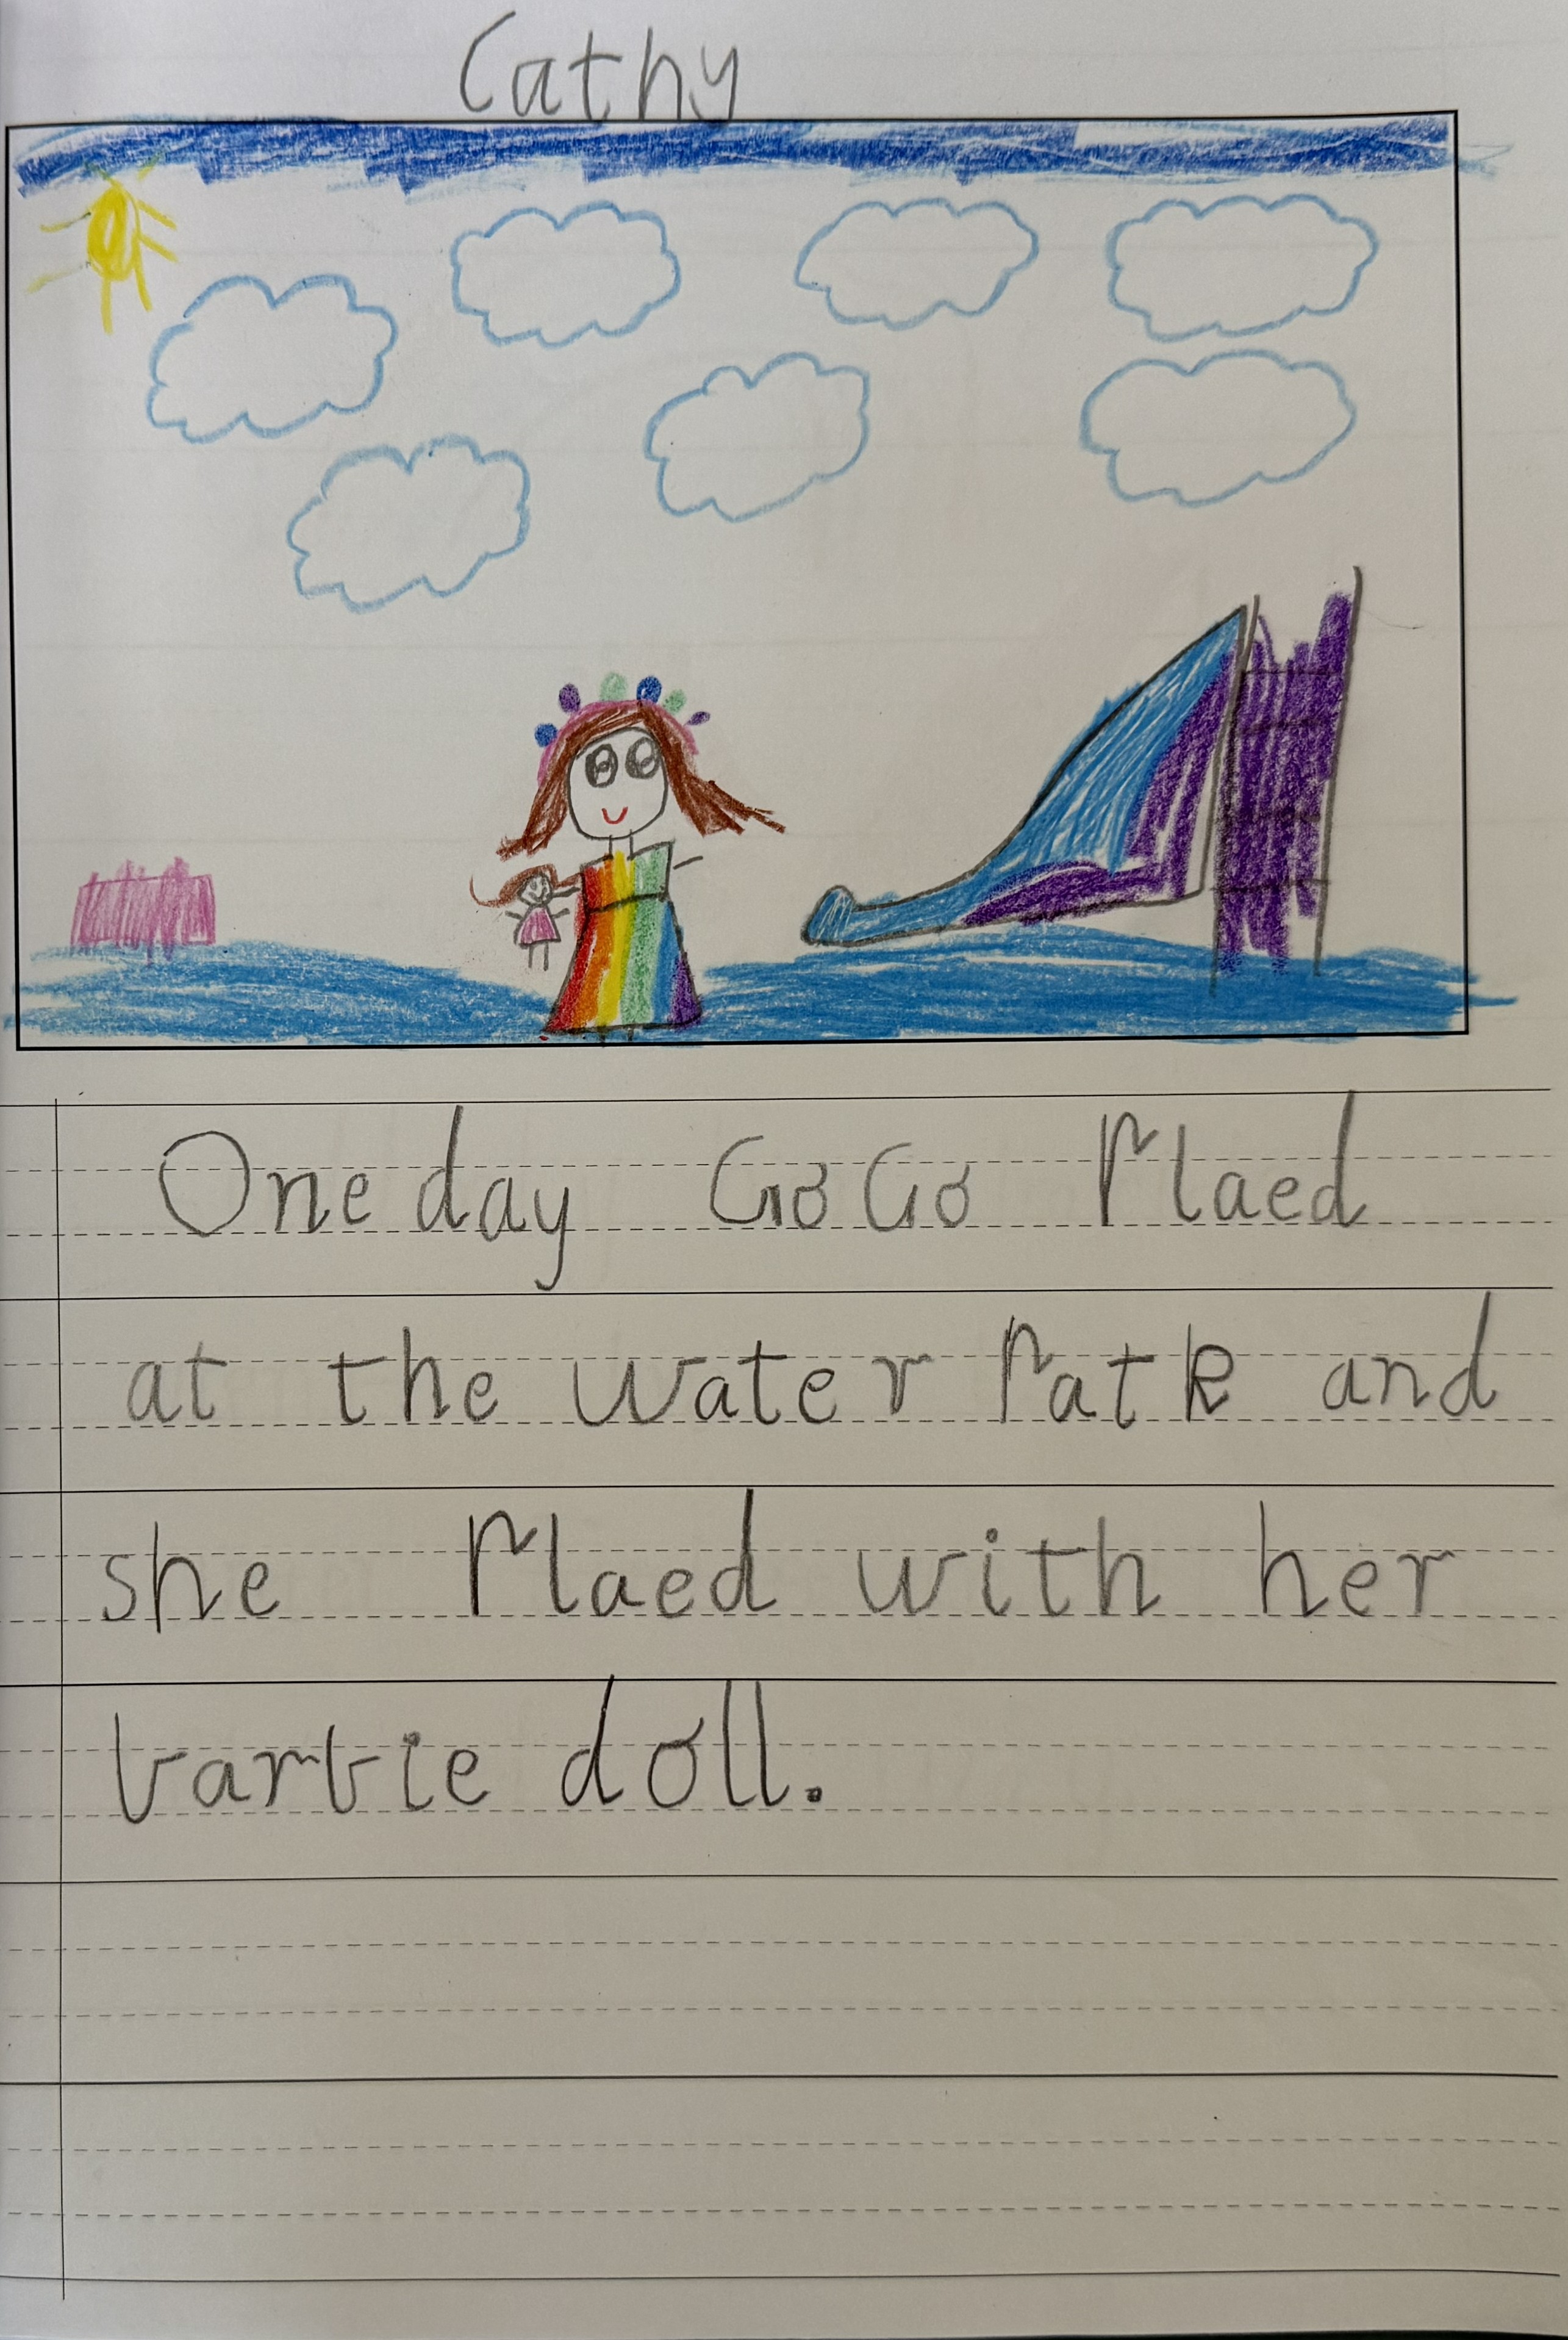 Cathy
One day GoGo Plaed
at the water Patk and
she Plaed with her
barbie doll.